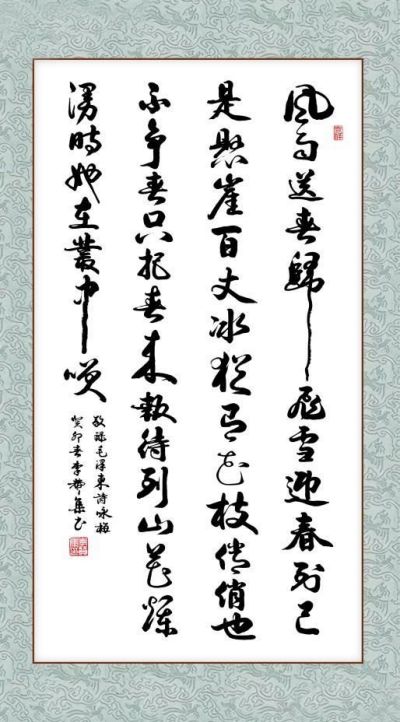 風雨送春歸飛雪迎春到已
是懸崖百丈冰猶有花枝俏俏也
不争春只把春来報待到山花爛
漫時她在叢中咲
敬録毛澤東詩咏梅
癸卯春李集书